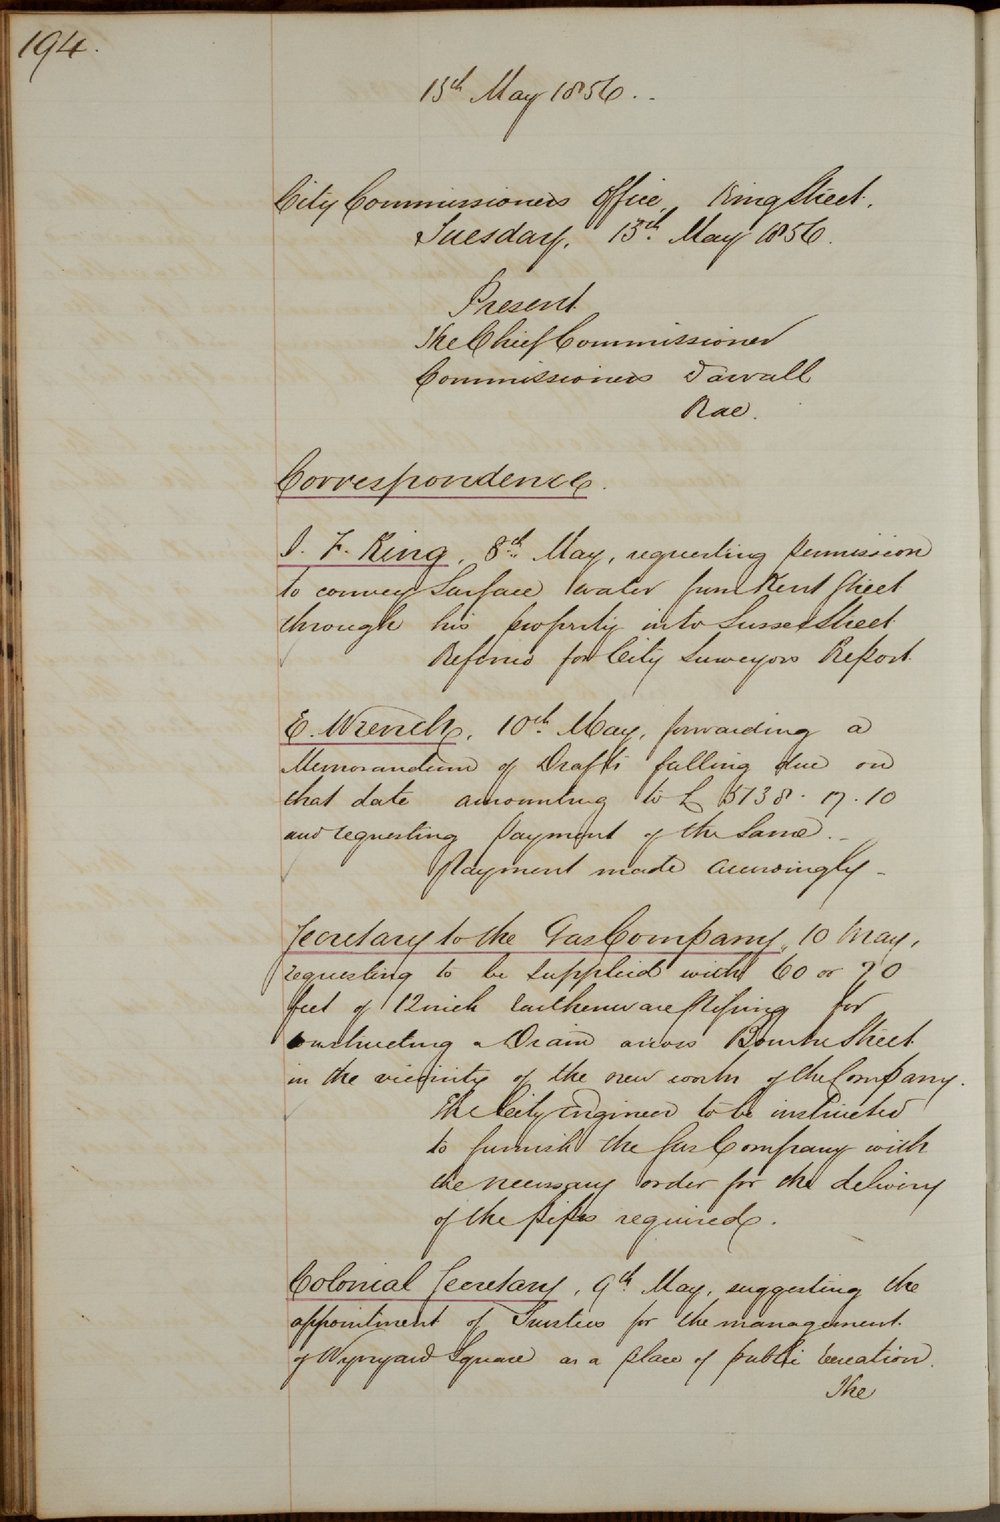 194.
13th May 1856.
City Commissioners Office, King Street.
Tuesday, 13th May 1856.
Present
The Chief Commissioner
Commissioners Darvall
Rae.
Correspondence.
J. F. King, 8th May, requesting permission
to convey Surface water from Kent Street
through his property into Sussex Street
Referred for City Surveyors Report.
E. Wrench, 10th May, forwarding a
Memorandum of Drafts falling due on
that date amounting to £ 5738. 17. 10
and requesting payment of the Same.
Payment made accordingly
Secretary to the Gas Company, 10 May,
requesting to be supplied with 60 or 70
feet of 12 inch Earthenware Piping for
constructing a Drain across Street
in the vicinity of the new works of the Company.
The City Engineer to be instructed
to furnish the Gas Company with
the necessary order for the delivery
of the pipes required.
Colonial Secretary, 9th May, suggesting the
appointment of Trustees for the management
of Wynyard Square as a place of public recreation.
The